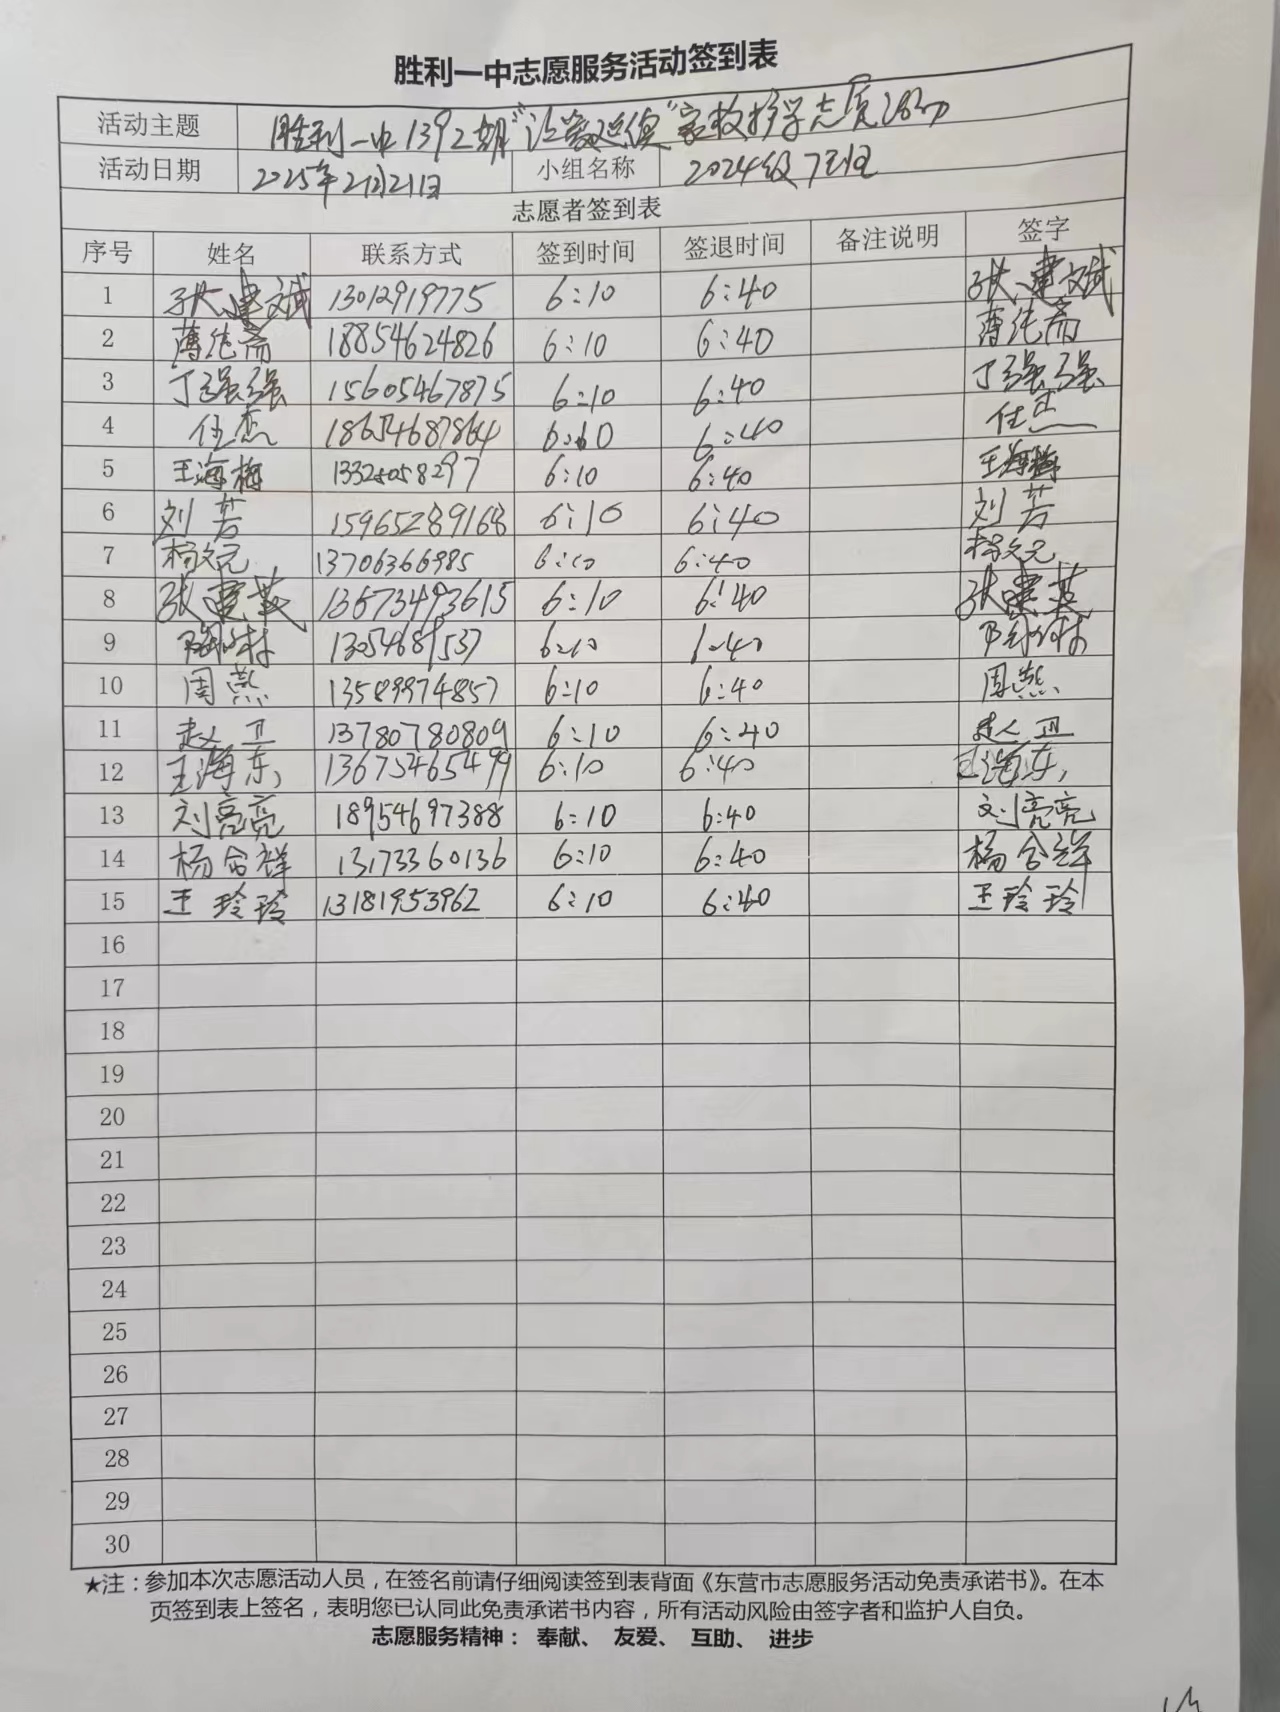 胜利一中志愿服务活动签到表
活动主题 胜利一中1392期"让爱巡使"家校护学志愿活动
活动日期 2025年2月21日 小组名称 2024级7班
志愿者签到表
序号 姓名 联系方式 签到时间 签退时间 备注说明 签字
1 张建斌 13012919775 6:10 6:40 张建斌
2 薄纯斋 18854624826 6:10 6:40 薄纯斋
3 丁强强 15605467875 6:10 6:40 丁强强
4 任杰 18654687864 6:10 6:40 任杰
5 王海梅 6:10 6:40 王海梅
6 刘芳 15965289168 6:10 6:40 刘芳
7 杨文元 13706366985 6:10 6:40 杨文元
8 张建英 13673493615 6:10 6:40 张建英
9 6:10 6:40
10 周燕 13589974857 6:10 6:40 周燕
11 赵卫 13780780809 6:10 6:40 赵卫
12 王海东 13675465499 6:10 6:40 王海东
13 刘亮亮 18954697388 6:10 6:40 刘亮亮
14 杨合祥 13173360136 6:10 6:40 杨合祥
15 王玲玲 13181953962 6:10 6:40 王玲玲
16
17
18
19
20
21
22
23
24
25
26
27
28
29
30
★注：参加本次志愿活动人员，在签名前请仔细阅读签到表背面《东营市志愿服务活动免责承诺书》。在本
页签到表上签名，表明您已认同此免责承诺书内容，所有活动风险由签字者和监护人自负。
志愿服务精神： 奉献、 友爱、 互助、 进步